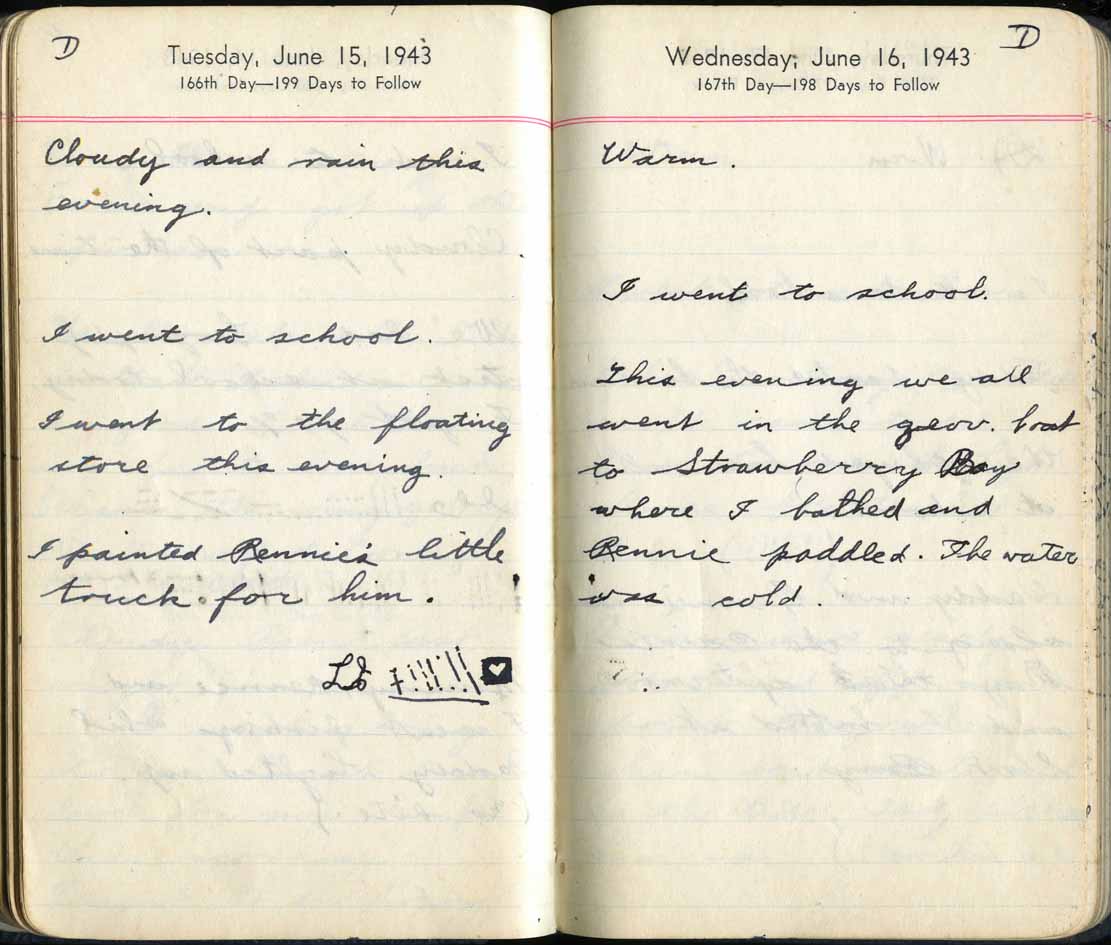 D
Tuesday, June 15, 1943
166th Day—199 Days to Follow
Cloudy and rain this
evening.
I went to school.
I went to the floating
store this evening.
I painted Rennie's little
truck for him.
D
Wednesday, June 16, 1943
167th Day—198 Days to Follow
Warm.
I went to school.
This evening we all
went in the gov. boat
to Strawberry Bay
where I bathed and
Rennie paddled. The water
was cold.